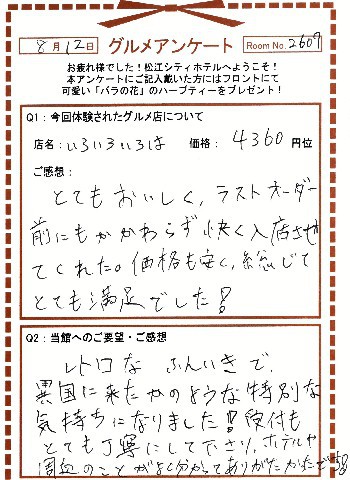 8月12日 グルメアンケート Room No. 2607
お疲れ様でした！松江シティホテルへようこそ！
本アンケートにご記入戴いた方にはフロントにて
可愛い「バラの花」のハーブティーをプレゼント！
Q1：今回体験されたグルメ店について
店名：いろいろいろは 価格： 4360 円位
ご感想：
とてもおいしく、ラストオーダー
前にもかかわらず快く入店させ
てくれた。価格も安く、総じて
とても満足でした！
Q2：当館へのご要望・ご感想
レトロな ふんいきで、
異国に来たかのような特別な
気持ちになりました！！受付も
とても丁寧にして下さり、ホテルや
周辺のことがよく分かってありがたかったです！！